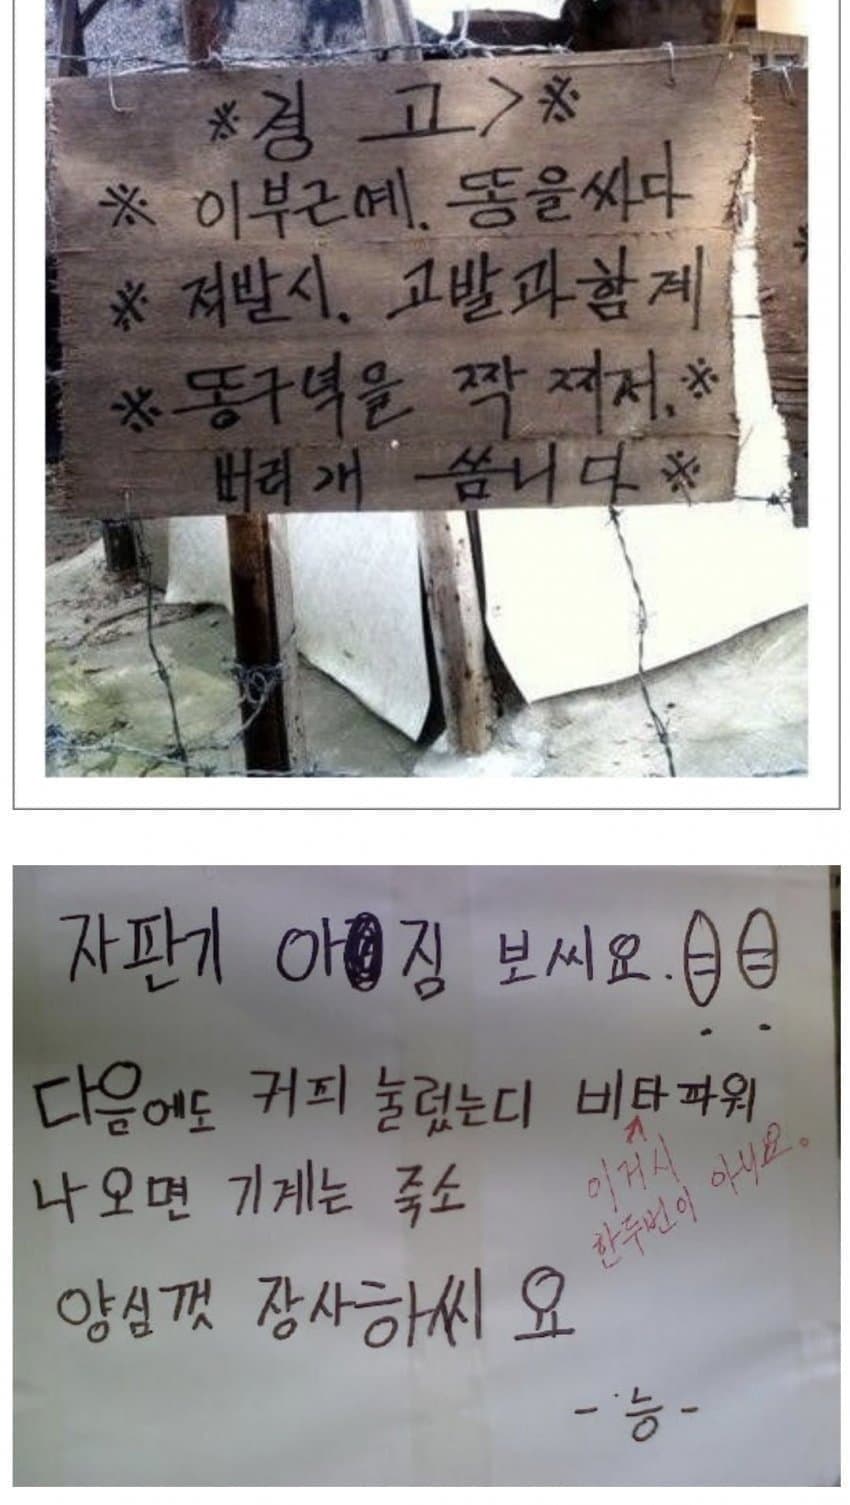 ※경 고>※
※ 이부근에. 똥을싸다
※ 저발시. 고발과함게
※ 똥구녁을 짝 찌저.※
버리개 씀니다 ※
자판기 아짐 보씨요.
다음에도 커피 눌렀는디 비타파워
이거시
한두번이 아니요。
나오면 기계는 죽소
양심껏 장사하씨요
- 능 -